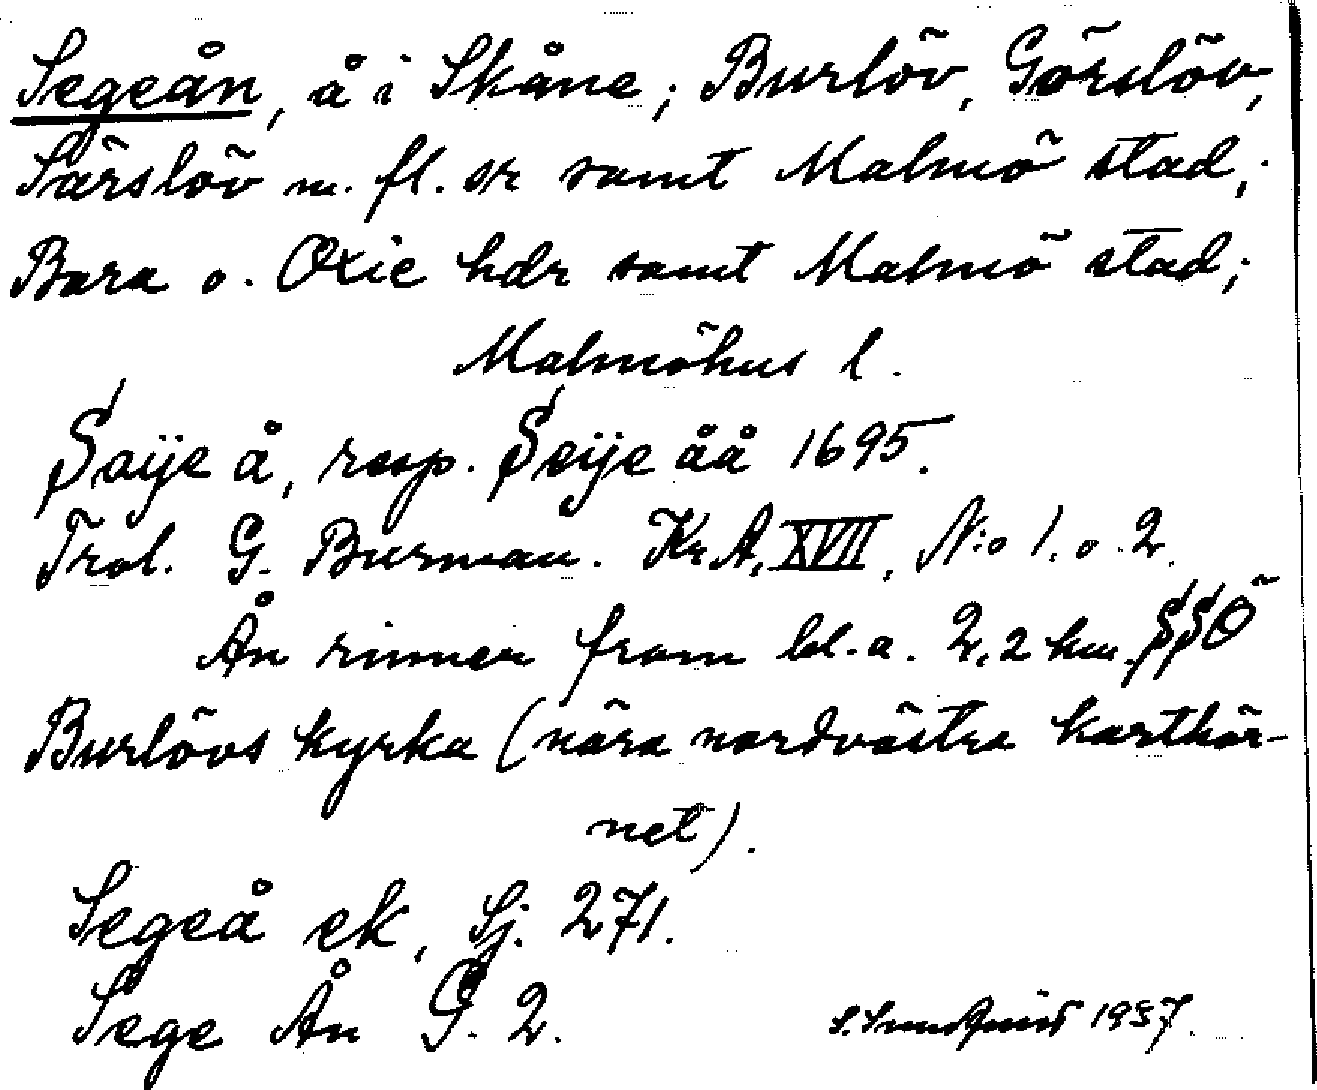 Segeån, å i Skåne; Burlöv, Görslöv,
Särslöv m. fl. sr samt Malmö stad;
Bara o. Oxie hdr samt Malmö stad;
Malmöhus l.
Saije å, resp. Seije åå 1695.
Trol. G. Burman. Kr A, XVII, N:o 1. o. 2.
Ån rinner fram bl. a. 2,2 km. SSÖ
Burlövs kyrka (nära nordvästra karthör-
net).
Segeå ek, Sj. 271.
Sege Ån G. 2. 1937.